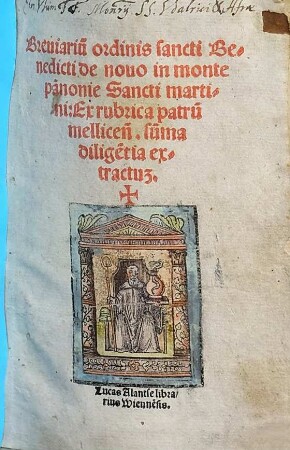 in Usum FF. Monrij SS. Udalrici & Afræ
Breviariū ordinis sancti Be-
nedicti de novo in monte
pānonie Sancti marti-
ni: Ex rubrica patrū
mellicen̄. sūma
diligētia ex-
tractuʒ.
Lucas Alantse libra/
rius Wiennēsis.